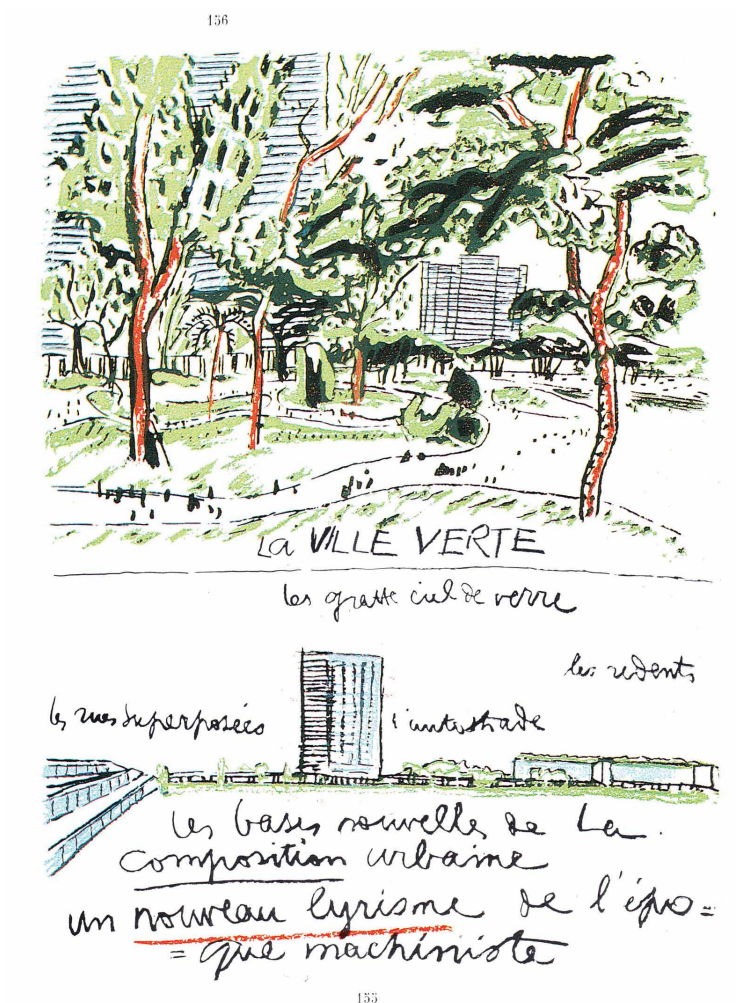 156
LA VILLE VERTE
les gratte ciel de verre
les redents
les rues superposées
l'autostrade
les bases nouvelles de la
composition urbaine
un nouveau lyrisme de l'épo=
=que machiniste
155